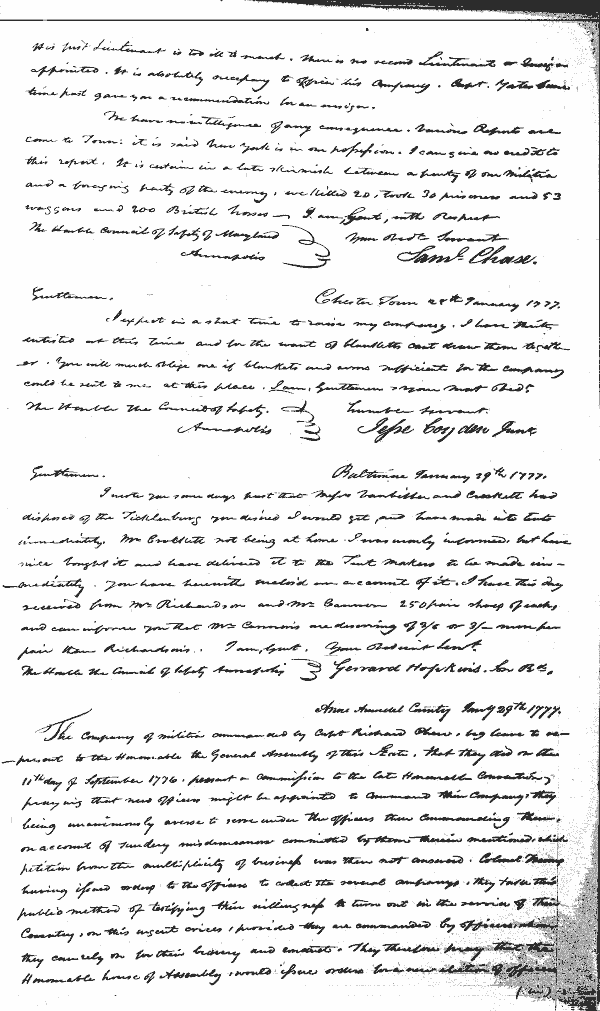 His first Lieutenant is too ill to march. There is no second Lieutenant or Ensign
appointed. It is absolutely necessary to officer his Company. Capt. Yates some
time past gave you a recommendation for an ensign.
We have no intelligence of any consequence. Various Reports are
come to Town: it is said New York is in our possession. I can give no credit to
this report. It is certain in a late skirmish between a party of our Militia
and a foraging party of the enemy, we killed 20, took 30 prisoners and 53
waggons and 200 British horses — I am, Gent, with Respect
The Honble Council of Safety of Maryland Your Obedt. Servant
Annapolis Saml. Chase.
Gentlemen. Chester Town 28th January 1777.
I expect in a short time to raise my company. I have thirty
enlisted at this time and for the want of blanketts cant draw them togeth-
er. You will much oblige me if blankets and arms sufficient for the company
could be sent to me at this place. I am, Gentlemen your most Obedt.
The Honble the Council of Safety. humber servant.
Annapolis Jesse Cosden Junr
Gentlemen. Baltimore January 29th 1777.
I wrote you some days past that Messrs Vanbibber and Crockett had
disposed of the Ticklenburg you desired I would get, and have made into tents
immediately. Mr Crockett not being at home I was wrongly informed, but have
since bought it and have delivered it to the Tent Makers to be made im-
mediately. You have herewith inclosed an account of it. I have this day
received from Mr Richardson and Mr Cannon 250 pair shoes of each,
and can inform you that Mr Cannons are deserving of 2/6 or 3/— more per
pair than Richardsons. I am, Gent. Your Obedient Servt.
The Honble the Council of Safety Annapolis Gerrard Hopkins. Son Rd.
Anne Arundel County Jany 29th 1777.
The Company of militia commanded by Capt Richard Chew, beg leave to re-
present to the Honourable the General Assembly of this State, That they did on the
11th day of September 1776, present a commission to the late Honorable Convention,
praying that new officers might be appointed to command their Company, they
being unanimously averse to serve under the officers then commanding them,
on account of sundry misdemeanors committed by them therein mentioned, which
petition from the multiplicity of business was then not answered. Colonel
having issued orders to the officers to collect the several companys, they take this
public method of testifying their willingness to turn out in the service of their
Country, on this urgent crisis, provided they are commanded by officers, whom
they can rely on for their bravery and conduct. They therefore pray that the
Honourable house of Assembly, would issue orders for a new election of officers